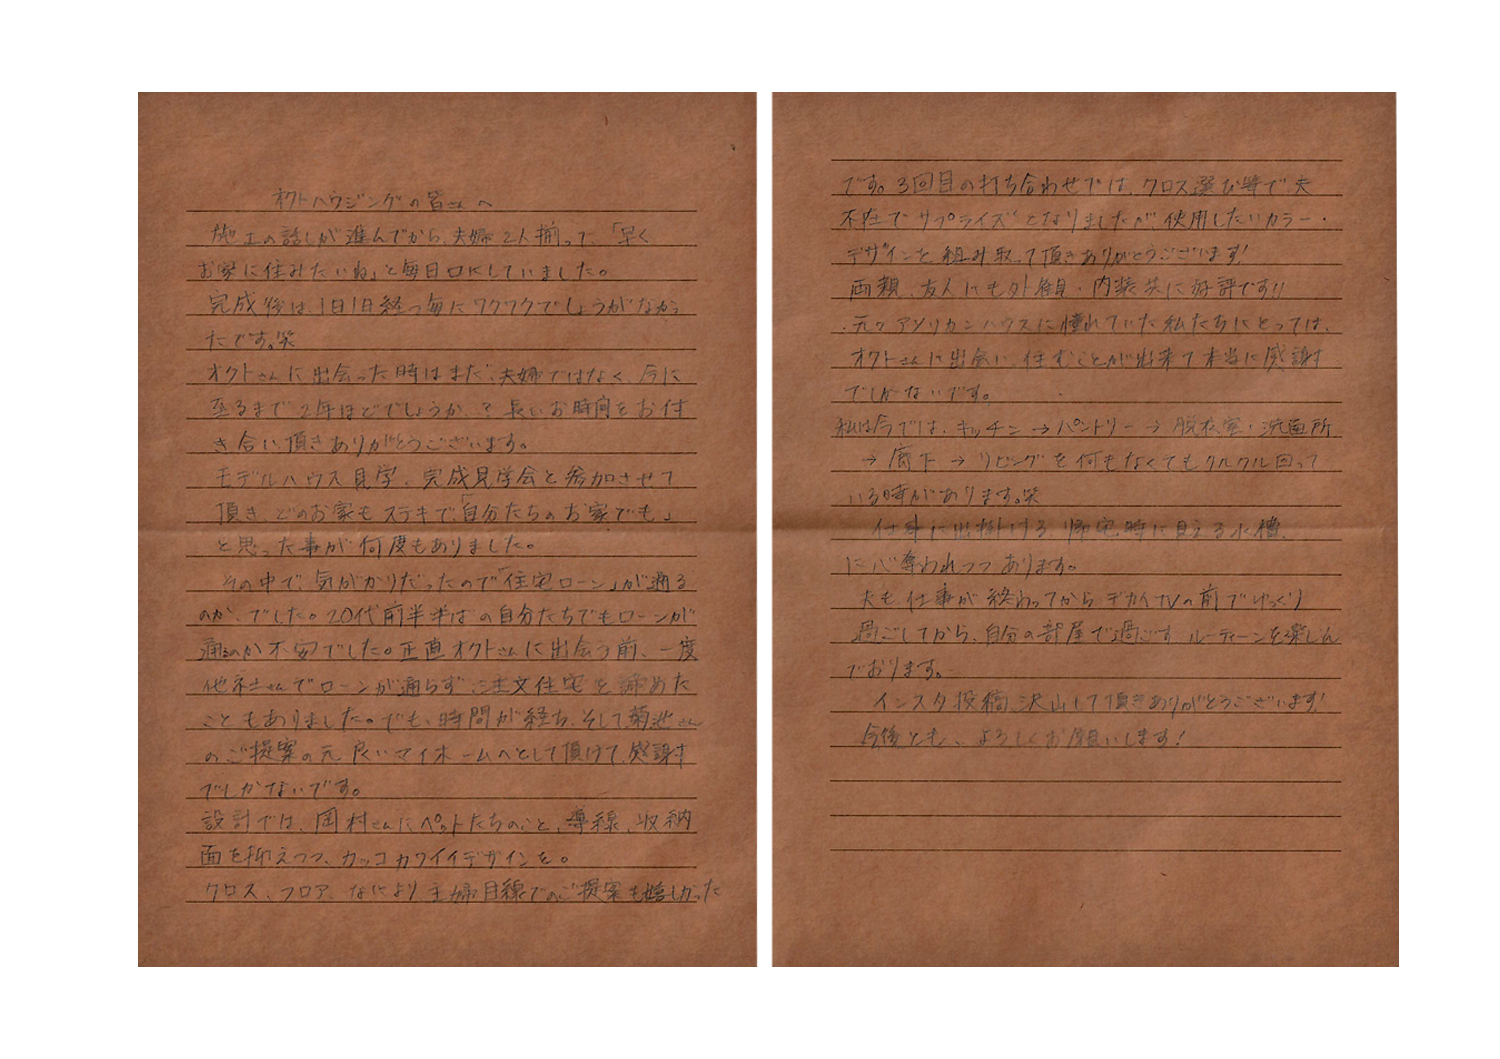 オクトハウジングの皆さんへ
施工の話しが進んでから、夫婦2人揃って、「早く
お家に住みたいね」と毎日口にしていました。
完成後は、1日1日経つ毎にワクワクでしょうがなかっ
たです。笑
オクトさんに出会った時はまだ、夫婦ではなく、今に
至るまで2年ほどでしょうか、?長いお時間をお付
き合い頂きありがとうございます。
モデルハウス見学、完成見学会と参加させて
頂き、どのお家もステキで、「自分たちのお家でも」
と思った事が何度もありました。
その中で、気がかりだったので「住宅ローン」が通る
のか、でした。20代前半半ばの自分たちでもローンが
通るのか不安でした。正直オクトさんに出会う前、一度
他社さんでローンが通らず注文住宅を諦めた
こともありました。でも、時間が経ち、そして菊池さん
のご提案の元良いマイホームへとして頂けて、感謝す
でしかないです。
設計では、岡村さんにペットたちのこと、導線、収納
面を抑えつつ、カッコカワイイデザインを。
クロス、フロア、なにより主婦目線でのご提案も嬉しかった
です。3回目の打ち合わせでは、クロス選び等で、夫
不在でサプライズとなりましたが、使用したいカラー・
デザインを組み取って頂きありがとうございます!
両親、友人にも外観・内装共に好評です!!
元々アメリカンハウスに憧れていた私たちにとっては、
オクトさんに出会い、住むことが出来て本当に感謝す
でしかないです。
私は今では、キッチン→パントリー→脱衣室・洗面所
→廊下→リビングを何もなくてもクルクル回って
いる時があります。笑
仕事に出掛ける、帰宅時に見える水槽、
に心奪われつつあります。
夫も、仕事が終わってからデカイTVの前でゆっくり
過ごしてから、自分の部屋で過ごす、ルーティーンを楽しん
でおります。
インスタ投稿、沢山して頂きありがとうございます!
今後とも、よろしくお願いします!